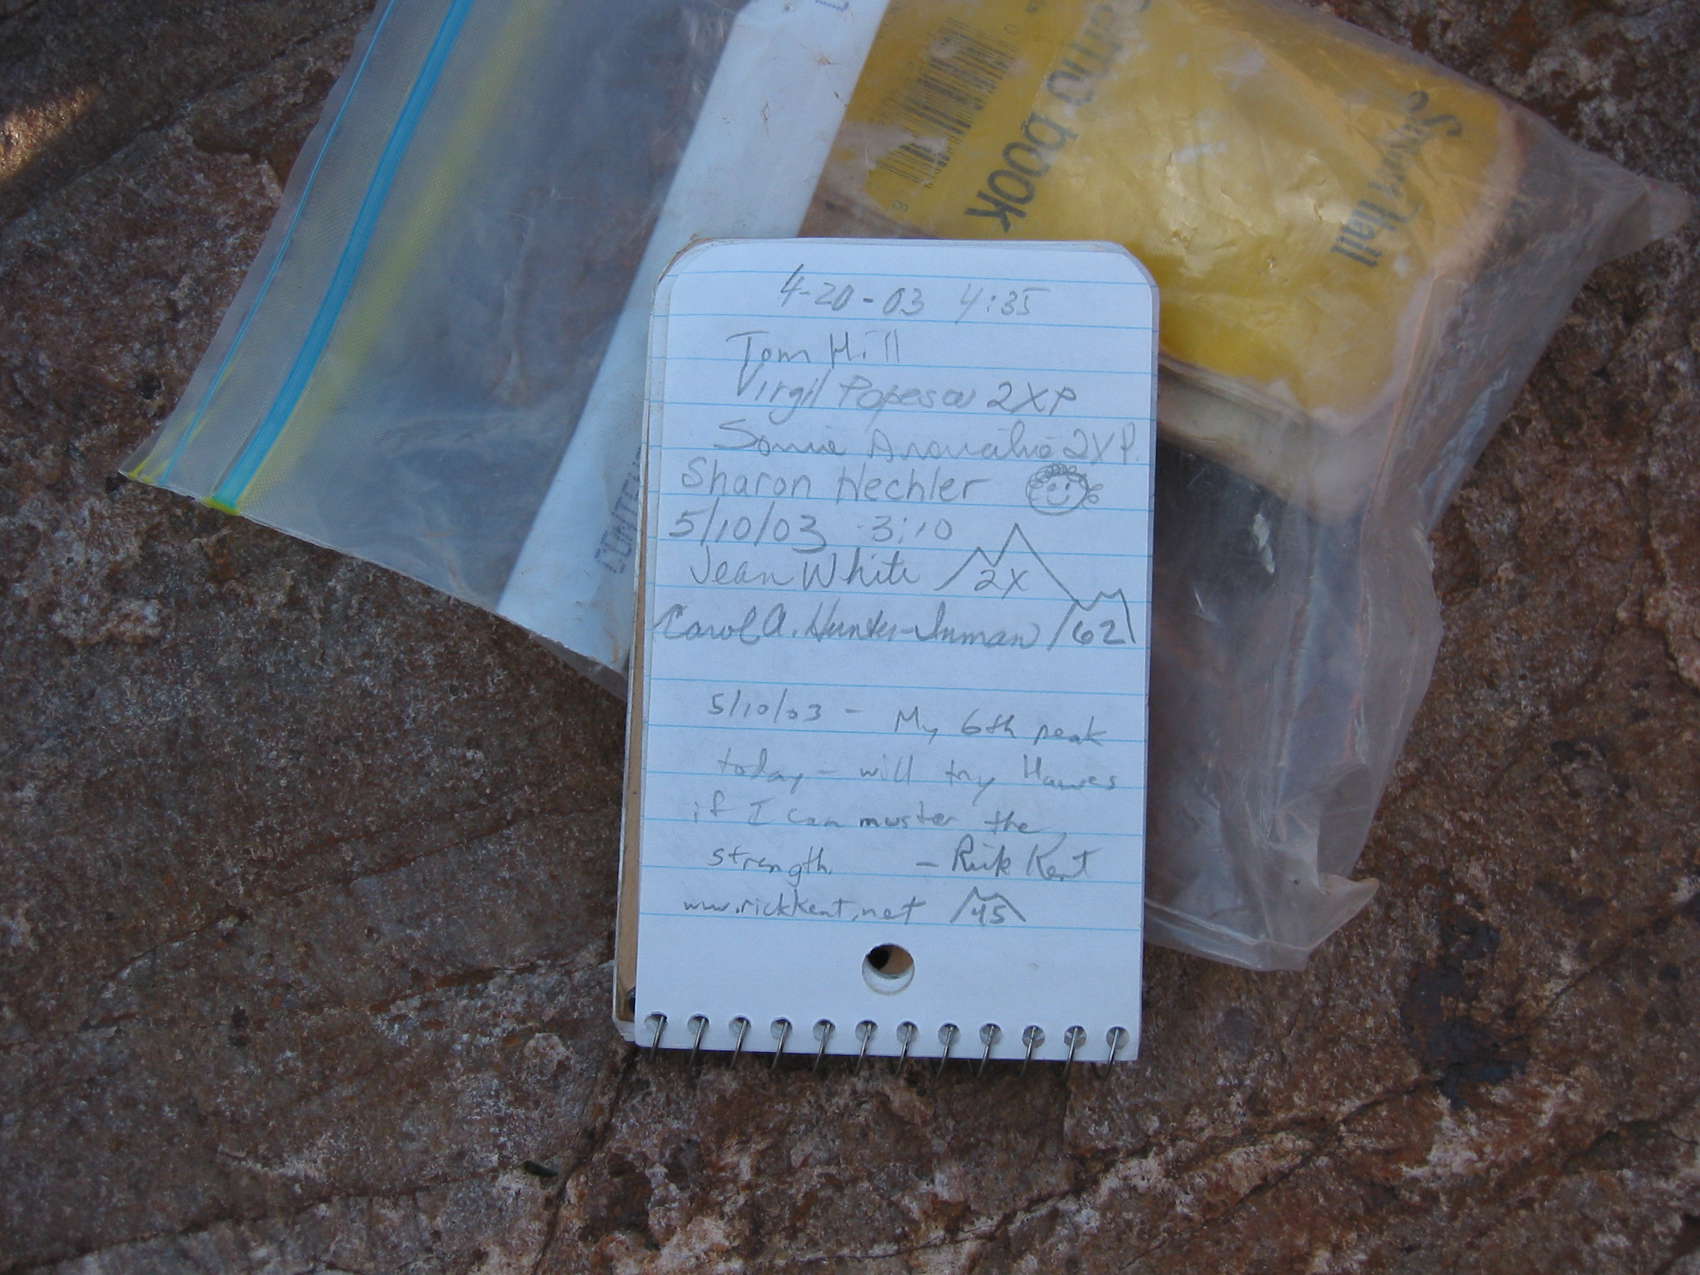 4-20-03 4:35
Tom Hill
Virgil Popescu 2XP
Sonia 2XP.
Sharon Hechler
5/10/03 3:10
Jean White 2X
Carol A. Hunter-Inman 62
5/10/03 - My 6th peak
today - will try Hawes
if I can muster the
strength. - Rick Kent
www.rickkent.net 45
memo book
Smead